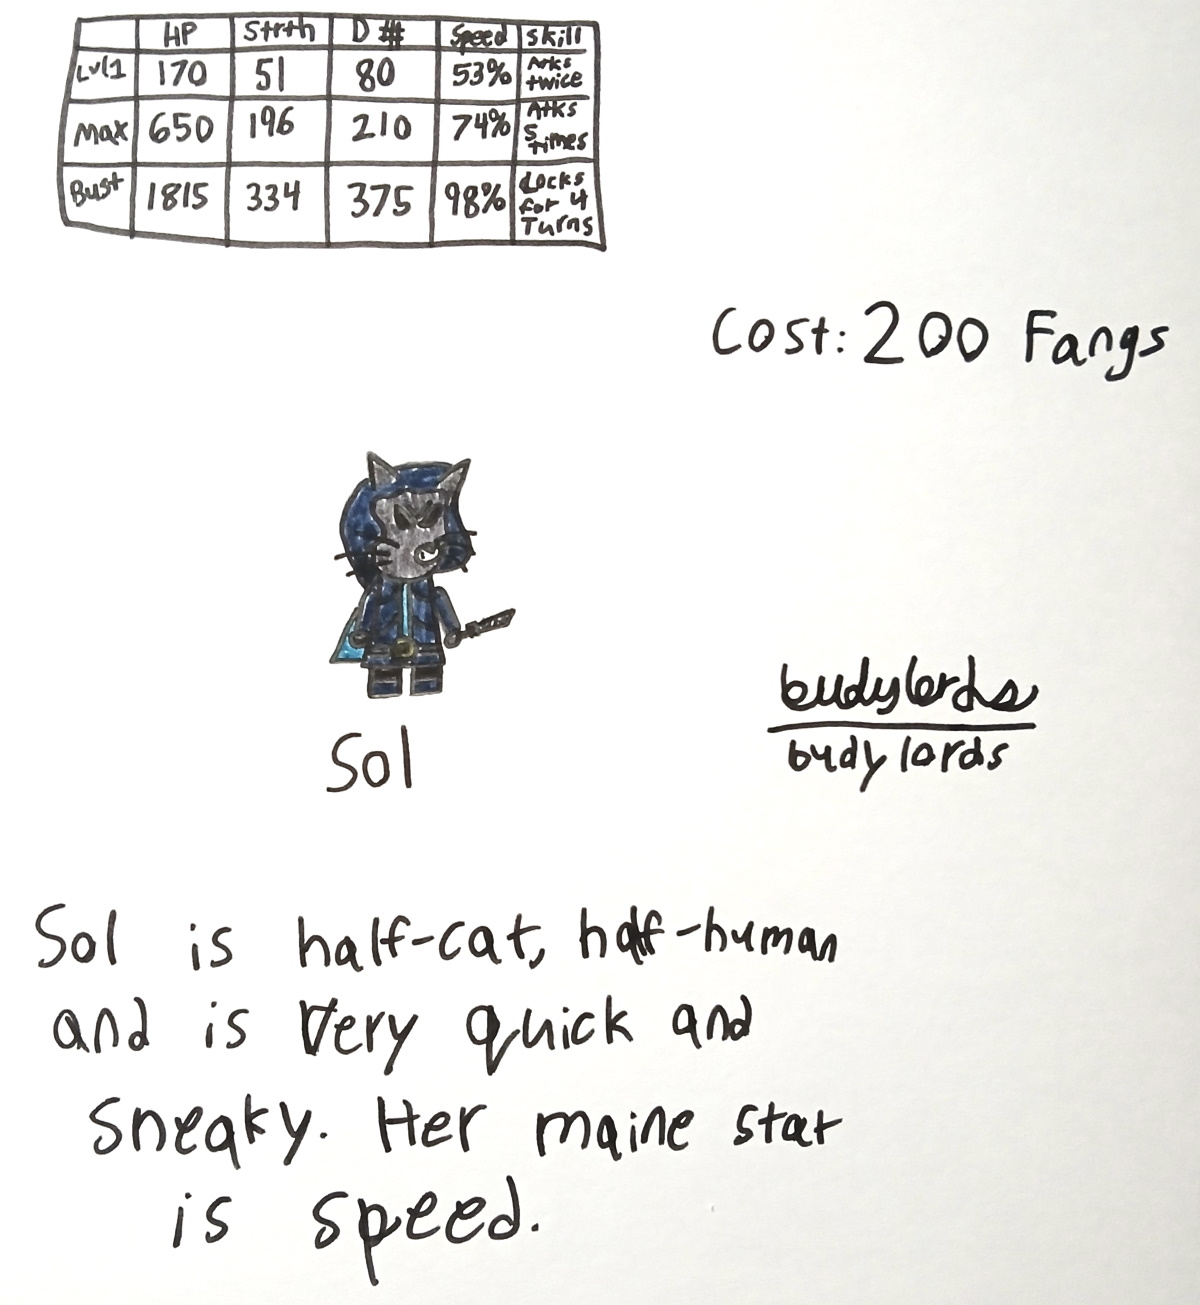 HP Strth D# Speed Skill
Lvl1 170 51 80 53% Atks twice
Max 650 196 210 74% Atks 5 times
Bust 1815 334 375 98% Locks for 4 Turns
Cost: 200 Fangs
Sol
budylords
budylords
Sol is half-cat, half-human
and is very quick and
sneaky. Her maine stat
is speed.